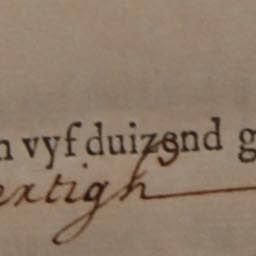 n vyf duizend g
extigh